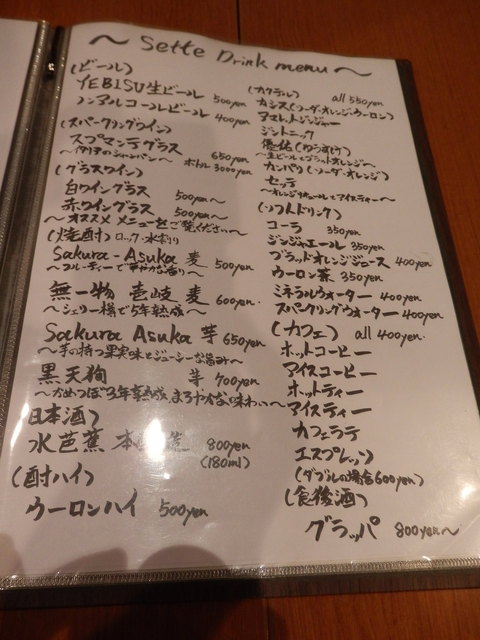 ～ Sette Drink menu ～
(ビール)
YEBISU生ビール 500yen
ノンアルコールビール 400yen
(スパークリングワイン)
スプマンテグラス 650yen
～イタリアのシャンパン～ ボトル 3000yen
(グラスワイン)
白ワイングラス 500yen～
赤ワイングラス 500yen～
～オススメメニューをご覧ください～
(焼酎) ロック・水割り
Sakura-Asuka 麦 500yen
～フルーティーで華やかな香り～
無一物 壱岐 麦 600yen
～シェリー樽で5年熟成～
Sakura Asuka 芋 650yen
～芋の持つ果実味とジューシーな旨み～
黒天狗 芋 700yen
～かめつぼで3年熟成、まろやかな味わい～
日本酒)
水芭蕉 本 造 800yen
(180ml)
(酎ハイ)
ウーロンハイ 500yen
(カクテル) all 550yen
カシス(ソーダ・オレンジ・ウーロン)
アマレットジンジャー
ジントニック
優佑(ゆうすけ)
～生ビールとブラッドオレンジ～
カンパリ(ソーダ・オレンジ)
セッテ
～オレンジリキュールとアイスティー～
(ソフトドリンク)
コーラ 350yen
ジンジャエール 350yen
ブラッドオレンジジュース 400yen
ウーロン茶 350yen
ミネラルウォーター 400yen
スパークリングウォーター 400yen
(カフェ) all 400yen
ホットコーヒー
アイスコーヒー
ホットティー
アイスティー
カフェラテ
エスプレッソ
(ダブルの場合600yen)
(食後酒)
グラッパ 800yen～